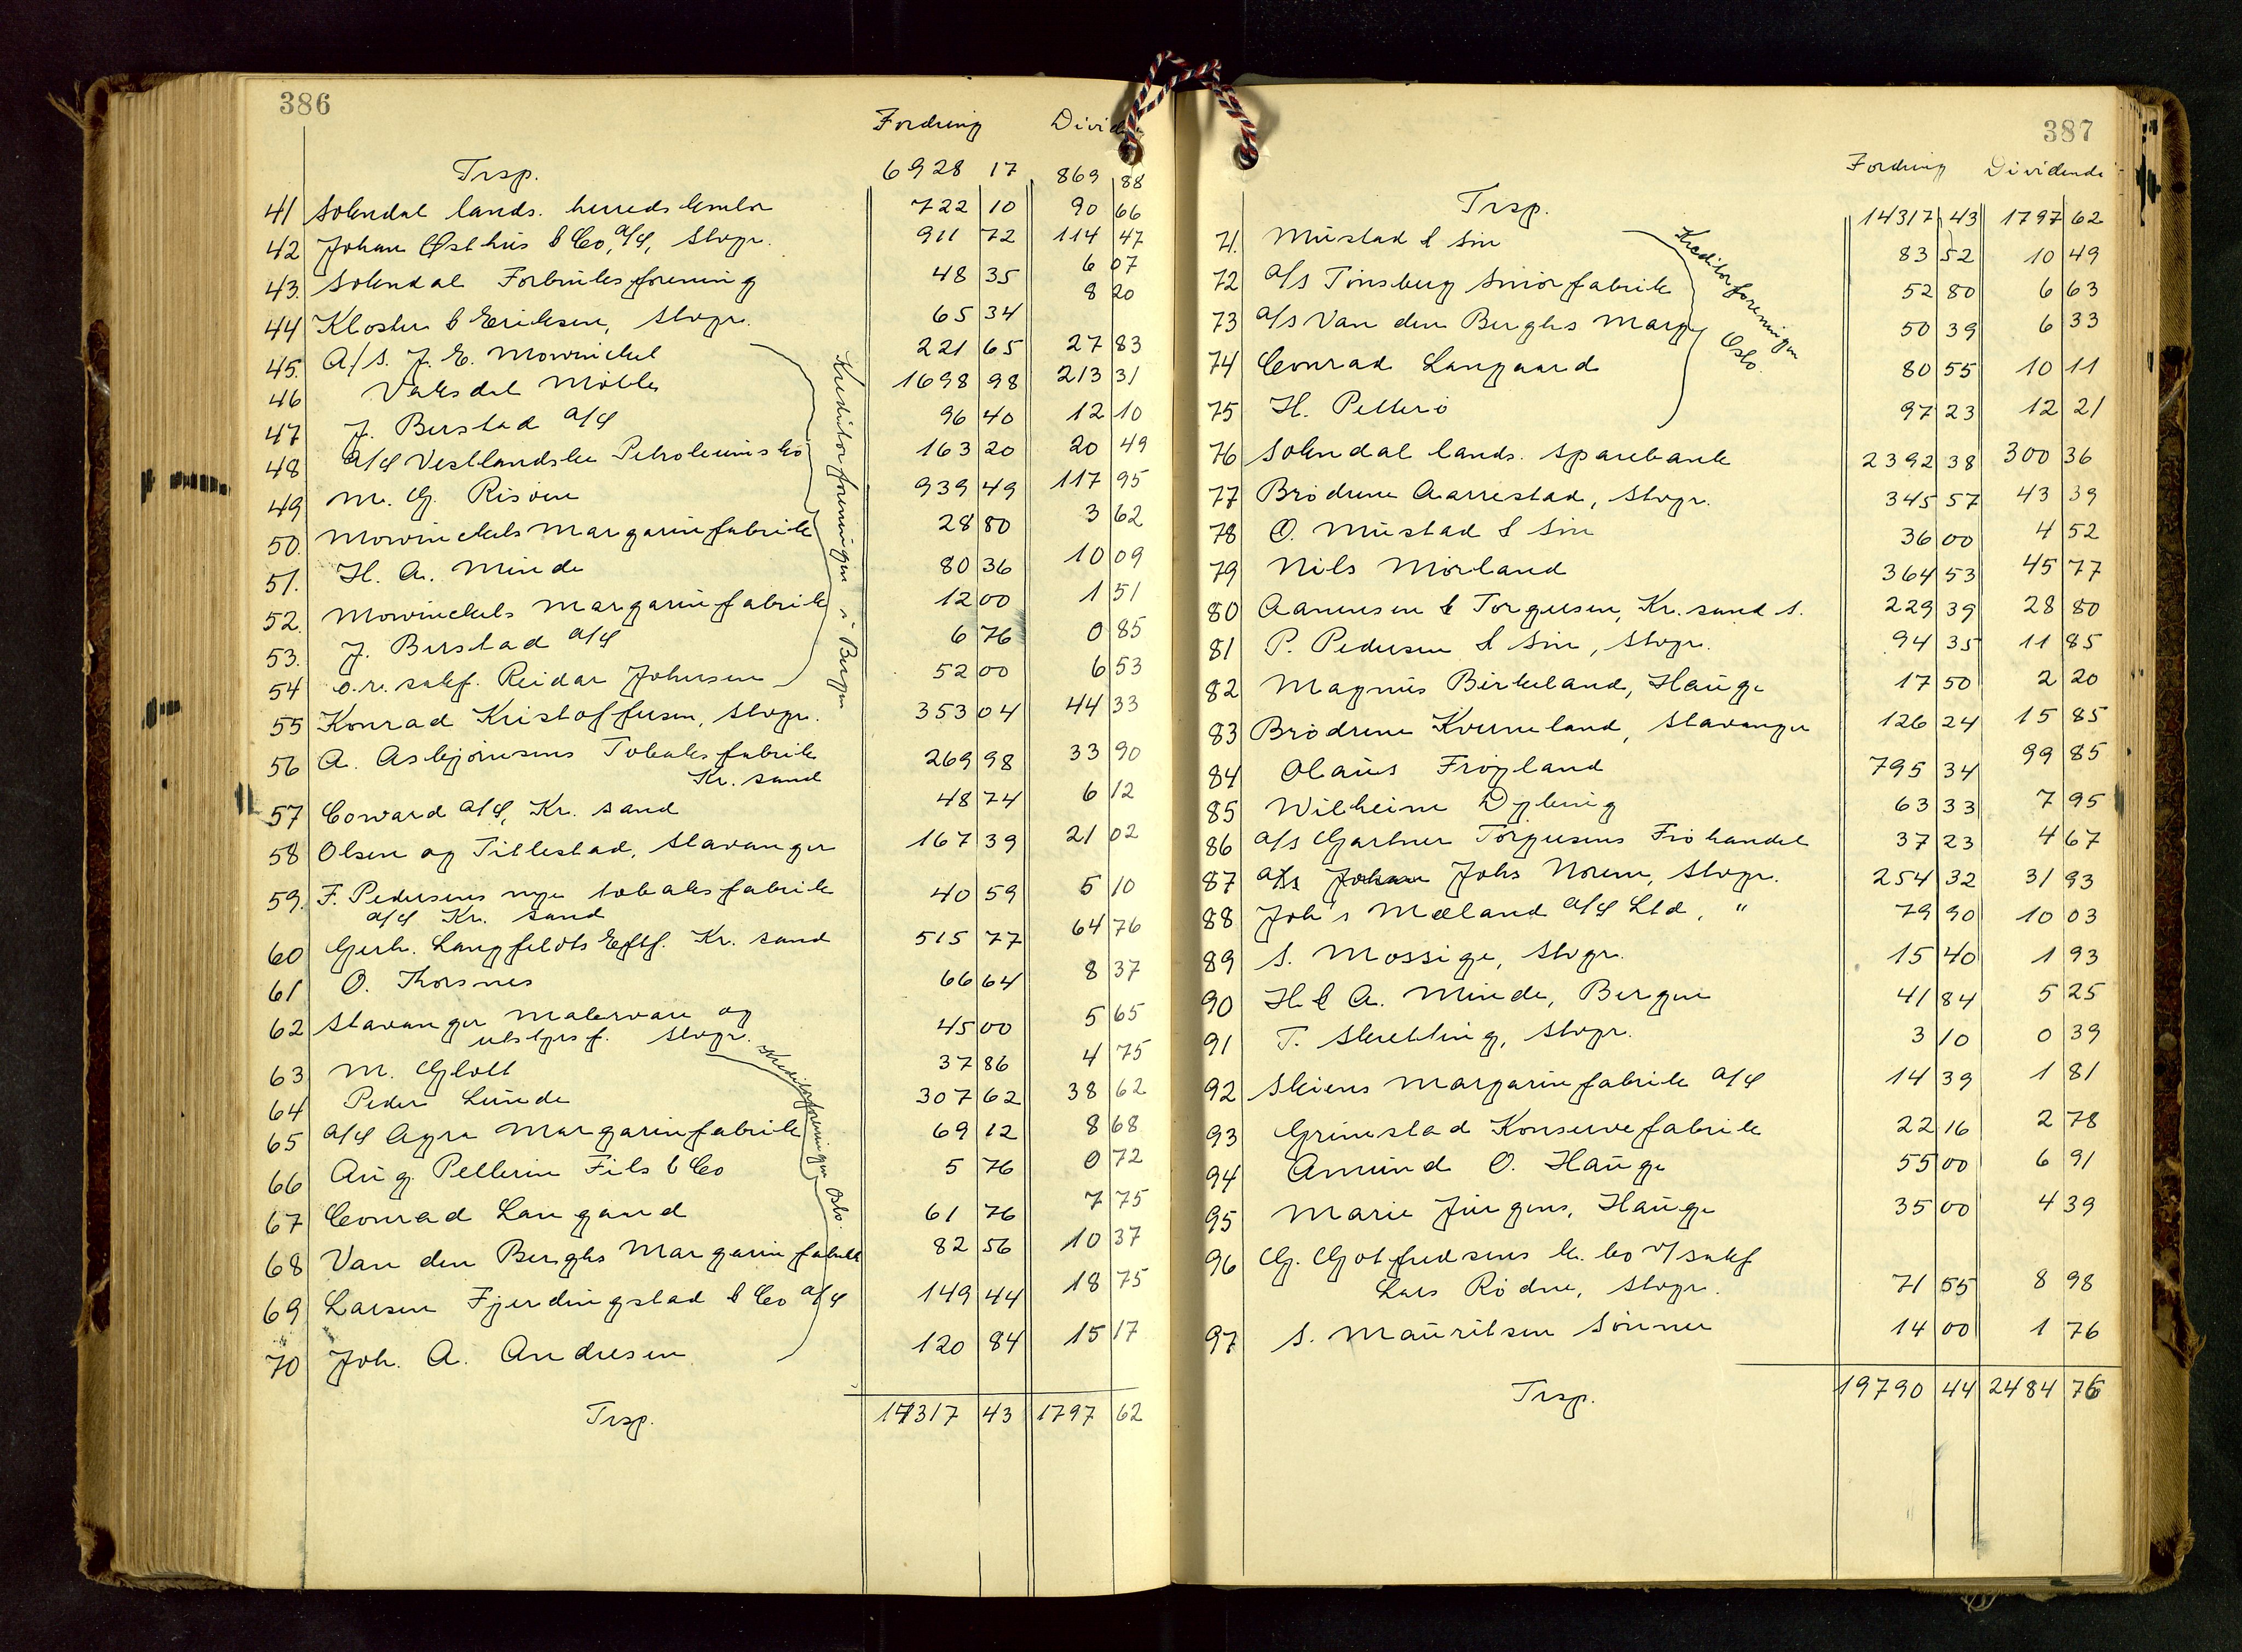 386
Fordring Divid
Trsp. 6928 17 869 88
41 Sokndal lands. herredskemlor 722 10 90 66
42 Johan Østhus & Co, A/S, Stvgr. 911 72 114 47
43. Sokndal Forbruksforening 48 35 6 07
44 Kloster & Eriksen, Stvgr. 65 34 8 20
45. A/S. J. E. Mowinckel 221 65 27 83
46 Vaksdal Mölle 1698 98 213 31
47 J. Berstad A/S 96 40 12 10
48 A/S Vestlandske Petroleums Co 163 20 20 49
49 M. G. Risöen 939 49 117 95
50. Mowinckels Margarinfabrik 28 80 3 62
51. H. A. Minde 80 36 10 09
52. Mowinckels Margarinfabrik 12 00 1 51
53. J. Berstad A/S 6 76 0 85
54 o.r. sakf. Reidar Johnsen 52 00 6 53
Kreditorforeningen i Bergen
55 Konrad Kristoffersen, Stvgr. 353 04 44 33
56 A. Asbjörnsens Tobaksfabrik 269 98 33 90
Kr. sand
57 Coward A/S, Kr. sand 48 74 6 12
58 Olsen og Tillestad, Stavanger 167 39 21 02
59. F. Pedersens nye tobaksfabrik 40 59 5 10
A/S Kr. sand
60 Gerh. Langfeldts Eftf. Kr. sand 515 77 64 76
61 O. Thorsnes 66 64 8 37
62 Stavanger Malervare og 45 00 5 65
utstyrsf. Stvgr.
63 M. Glott 37 86 4 75
64 Peder Lunde 307 62 38 62
65 A/S Agra Margarinfabrik 69 12 8 68
66 Aug. Pellerin Fils & Co 5 76 0 72
67 Conrad Langaard 61 76 7 75
68 Van den Berghs Margarinfabrik 82 56 10 37
69 Larsen Fjerdingstad & Co A/S 149 44 18 75
70 Joh. A. Andresen 120 84 15 17
Kreditorforeningen Oslo.
Trsp. 14317 43 1797 62
387
Fordring Dividende
Trsp. 14317 43 1797 62
71. Mustad & Sön 83 52 10 49
72 A/S Tönsberg Smörfabrik 52 80 6 63
73 A/S Van den Berghs Marg. 50 39 6 33
74 Conrad Langaard 80 55 10 11
75 H. Petterö 97 23 12 21
Kreditorforeningen Oslo.
76 Sokndal lands. sparebank 2392 38 300 36
77 Brödrene Aarrestad, Stvgr. 345 57 43 39
78 O. Mustad & Sön 36 00 4 52
79 Nils Mörland 364 53 45 77
80 Aanensen & Torgersen, Kr. sand s. 229 39 28 80
81 P. Pedersen & Sön, Stvgr. 94 35 11 85
82 Magnus Birkeland, Hauge 17 50 2 20
83 Brödrene Kverneland, Stavanger 126 24 15 85
84 Olaus Fröyland 795 34 99 85
85 Wilhelm Dybing 63 33 7 95
86 A/S Gartner Torgersens Fröhandel 37 23 4 67
87 A/S Johan Johs Noren, Stvgr. 254 32 31 93
88 Joh's Mæland A/S Ltd, " 79 90 10 03
89 S. Mossige, Stvgr. 15 40 1 93
90 H. & A. Minde, Bergen 41 84 5 25
91 T. Skretting, Stvgr. 3 10 0 39
92 Skiens Margarinfabrik A/S 14 39 1 81
93 Grimstad Konservefabrik 22 16 2 78
94 Amund O. Hauge 55 00 6 91
95 Marie Jürgens, Hauge 35 00 4 39
96 G. Gotfredsens k. bo v/sakf
Lars Rödne, Stvgr. 71 55 8 98
97 S. Mauritsen Sönner 14 00 1 76
Trsp. 19790 44 2484 76